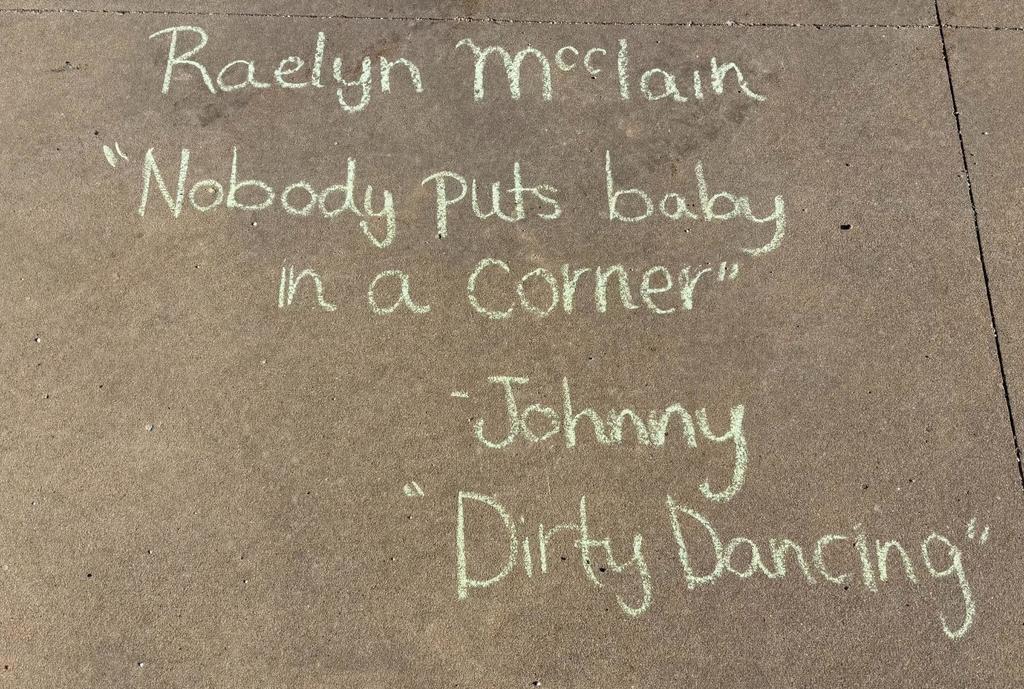 Raelyn McClain
"Nobody puts baby
in a corner"
-Johnny
"Dirty Dancing"